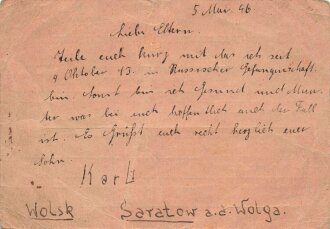 5 Mai. 46
Liebe Eltern.
Teile euch kurz mit das ich seit
9 Oktober 43. in Russischer Gefangenschaft
bin. Sonst bin ich Gesund und Mun-
ter was bei euch hoffentlich auch der Fall
ist. Es Grüßt euch recht herzlich euer
Sohn
Karl
Wolsk Saratow a. d. Wolga.